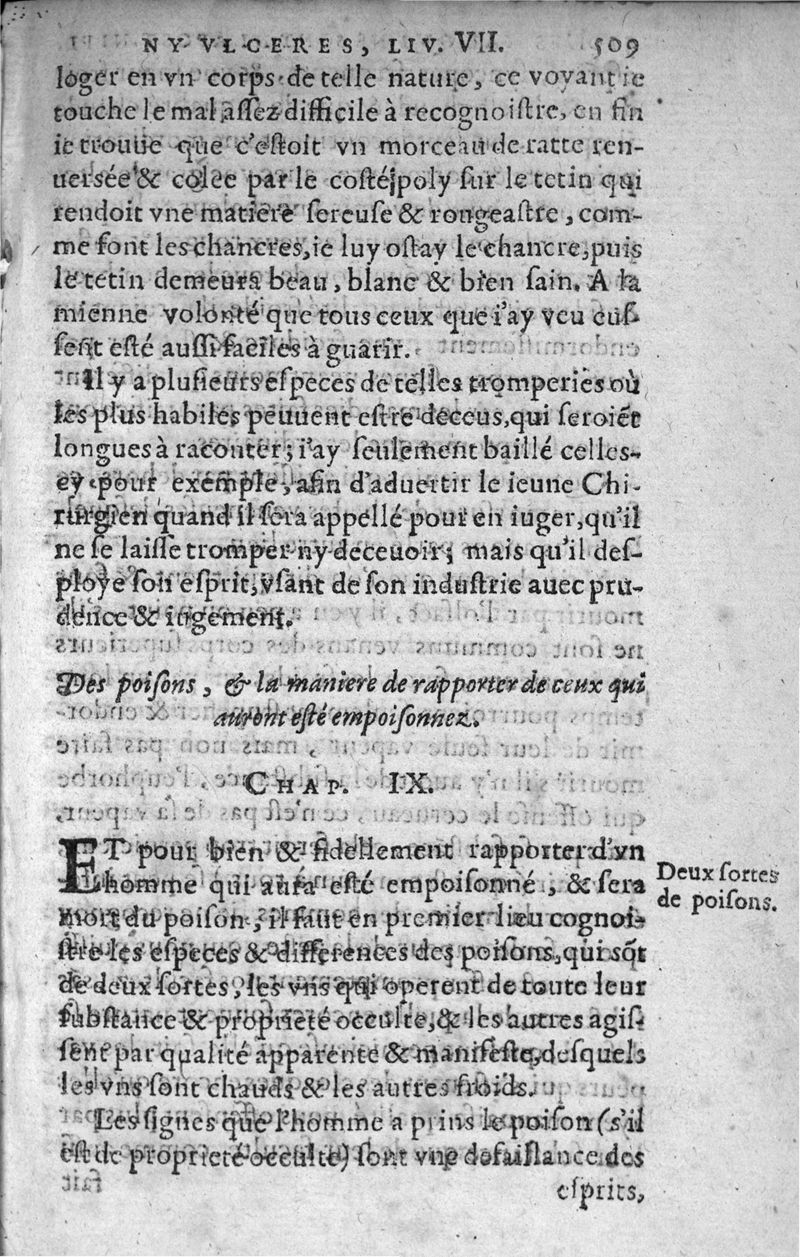 NY VLCERES, LIV. VII. 509
loger en vn corps de telle nature, ce voyant ie
touche le mal assez difficile à recognoistre, en fin
ie trouue que c'estoit vn morceau de ratte ren-
uersée & colée par le costé poly sur le tetin qui
rendoit vne matiere sereuse & rongeastre, com-
me font les chancres, ie luy ostay le chancre, puis
le tetin demeura beau, blanc & bien sain. A la
mienne volonté que tous ceux que i'ay veu eus-
sent esté aussi faciles à guarir.
Il y a plusieurs especes de telles tromperies où
les plus habiles peuuent estre deceus, qui seroiẽt
longues à raconter; i'ay seulement baillé celles-
cy pour exemple, afin d'aduertir le ieune Chi-
rurgien quand il sera appellé pour en iuger, qu'il
ne se laisse tromper ny deceuoir; mais qu'il des-
ploye son esprit, vsant de son industrie auec pru-
dence & iugement.
Des poisons, & la maniere de rapporter de ceux qui
auront esté empoisonnez.
CHAP. IX.
ET pour bien & fidellement rapporter d'vn
homme qui aura esté empoisonné, & sera
mort du poison, il faut en premier lieu cognoi-
stre les especes & differences des poisons, qui sõt
de deux sortes, les vns qui operent de toute leur
substance & proprieté occulte, & les autres agis-
sent par qualité apparente & manifeste, desquels
les vns sont chauds & les autres froids.
Les signes que l'homme a prins le poison (s'il
est de proprieté occulte) sont vne defaillance des
esprits,
Deux sortes
de poisons.